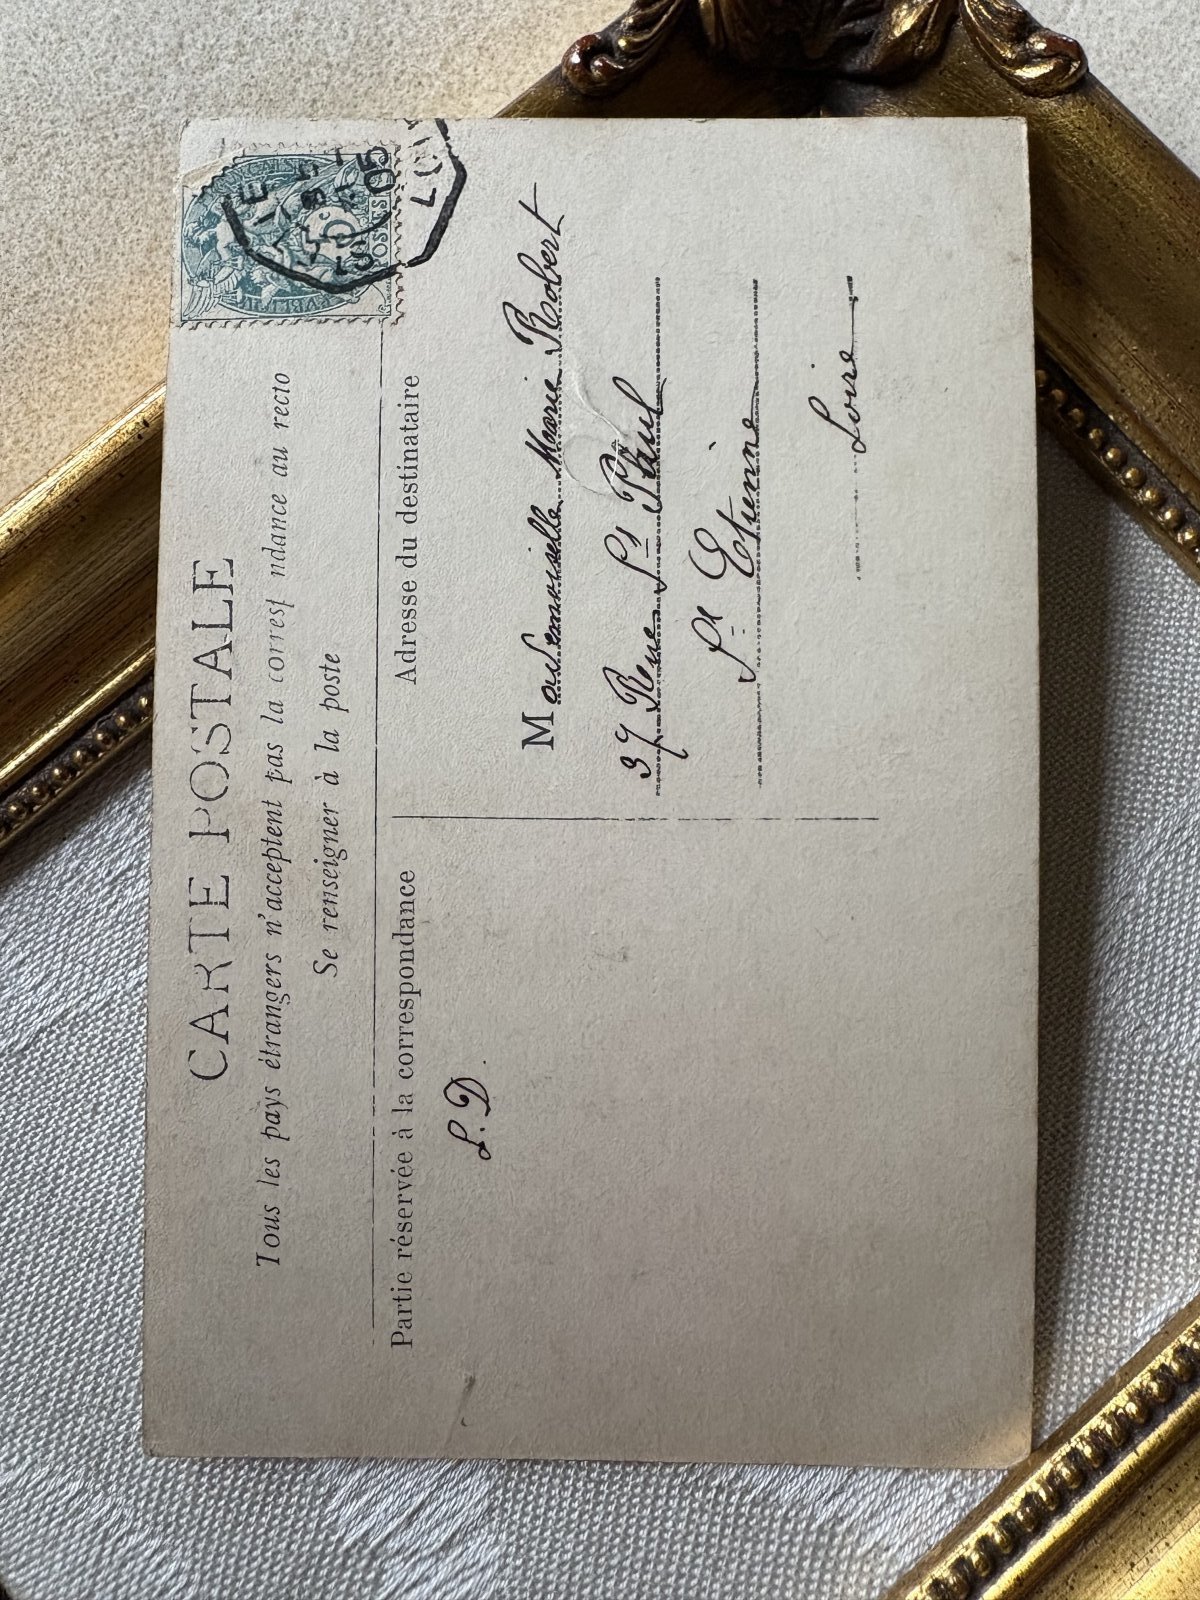 CARTE POSTALE
Tous les pays étrangers n'acceptent pas la corresp ndance au recto
Se renseigner à la poste
Partie réservée à la correspondance
L. D.
Adresse du destinataire
Mademoiselle Marie Robert
37 Rue St Paul
St Etienne
Loire
POSTES
05